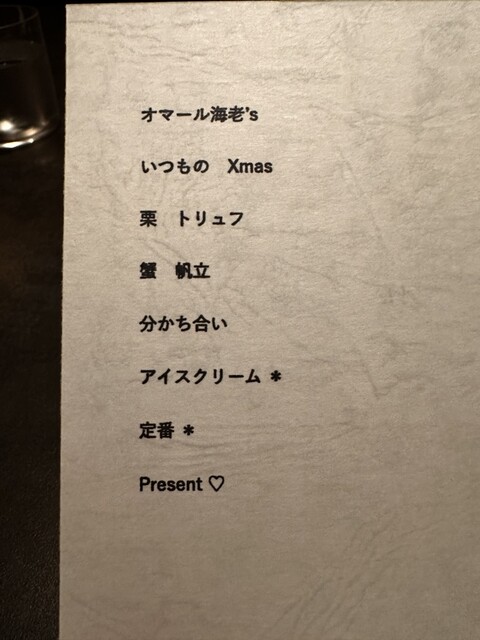 オマール海老's
いつもの　Xmas
栗　トリュフ
蟹　帆立
分かち合い
アイスクリーム ＊
定番 ＊
Present ♡